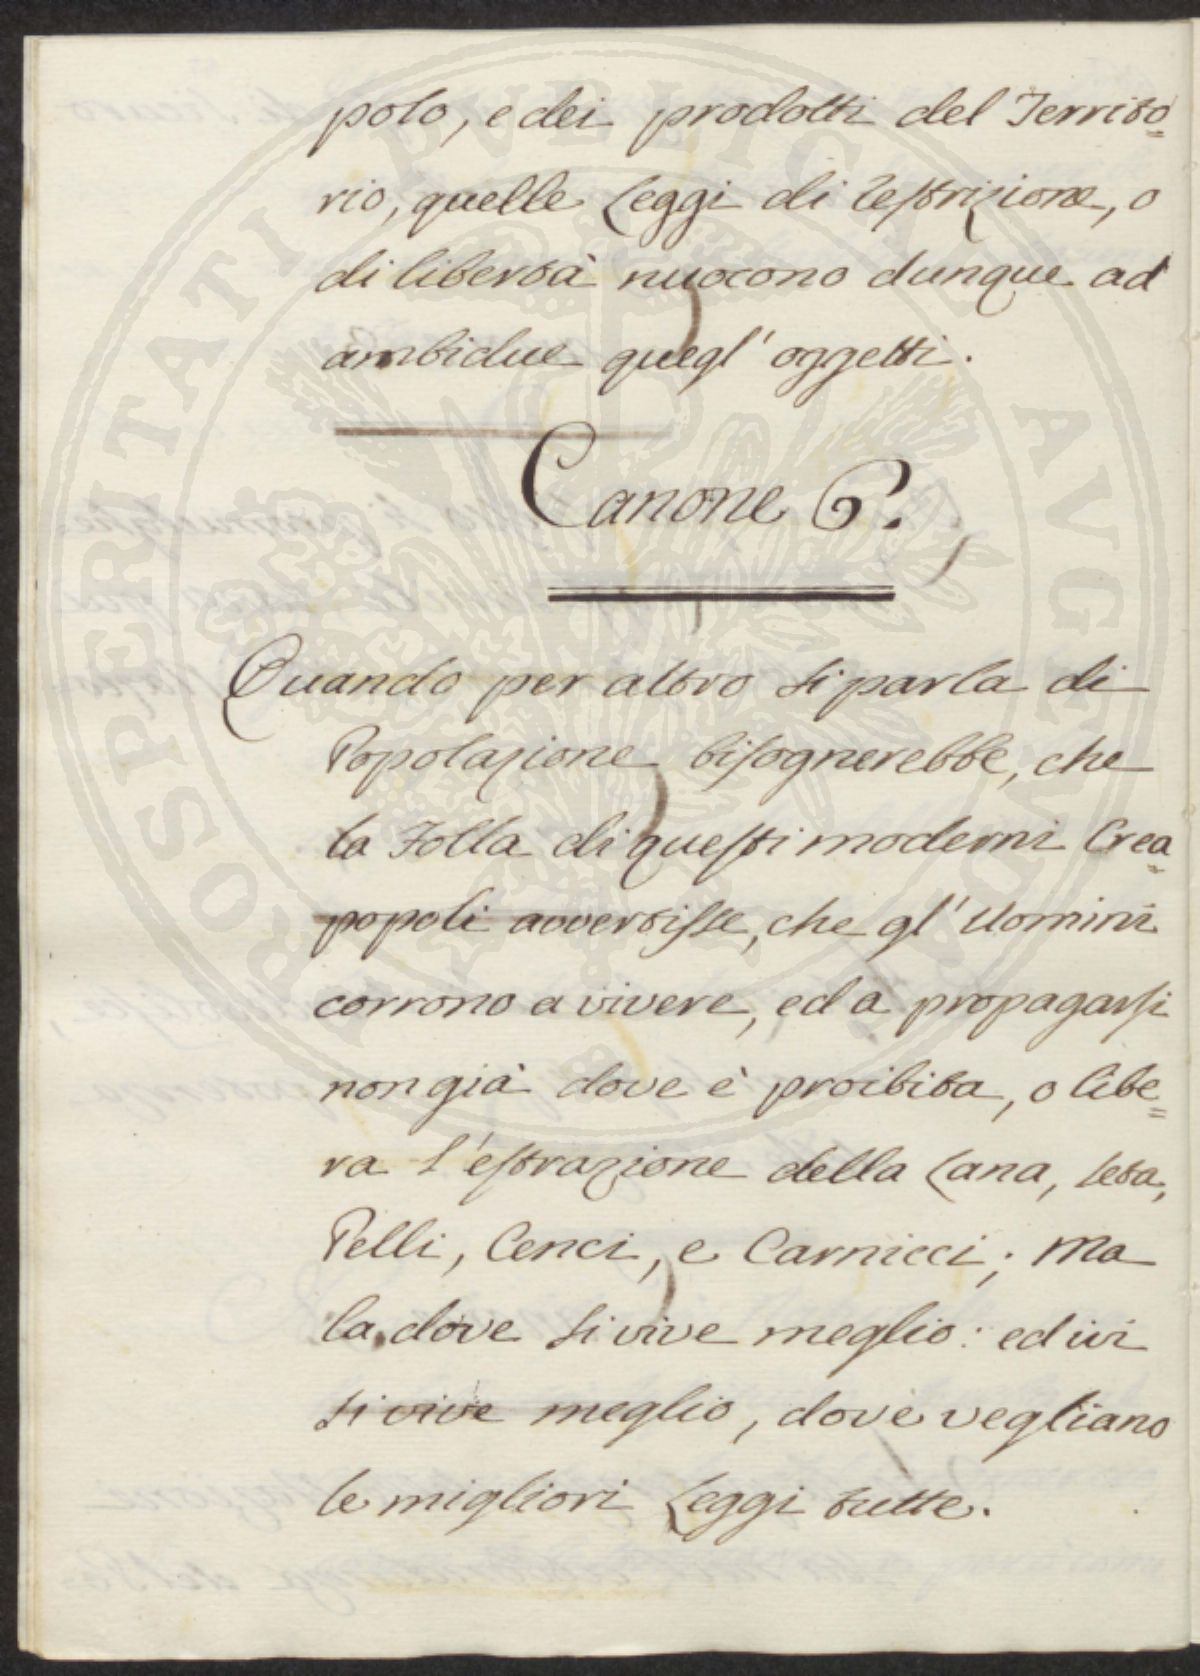 polo, e dei prodotti del Territo=
rio, quelle Leggi di restrizione, o
di libertà nuocono dunque ad
ambidue quegl' oggetti.
Canone 6.
Quando per altro si parla di
Popolazione bisognerebbe, che
la Folla di questi moderni Crea=
popoli avvertisse, che gl' Uomini
corrono a vivere, ed a propagarsi
non già dove è proibita, o libe=
ra l'estrazione della Lana, seta,
Pelli, Cenci, e Carnicci; Ma
la dove si vive meglio: ed ivi
si vive meglio, dove vegliano
le migliori Leggi tutte.
PROSPERITATI PVBLICAE AVGENDAE